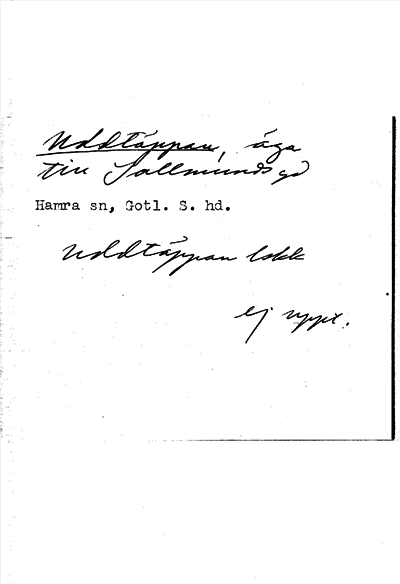 Uddtäppan, äga
till Sallmunds gd
Hamra sn, Gotl. S. hd.
Uddtäppan lokk
ej uppt.